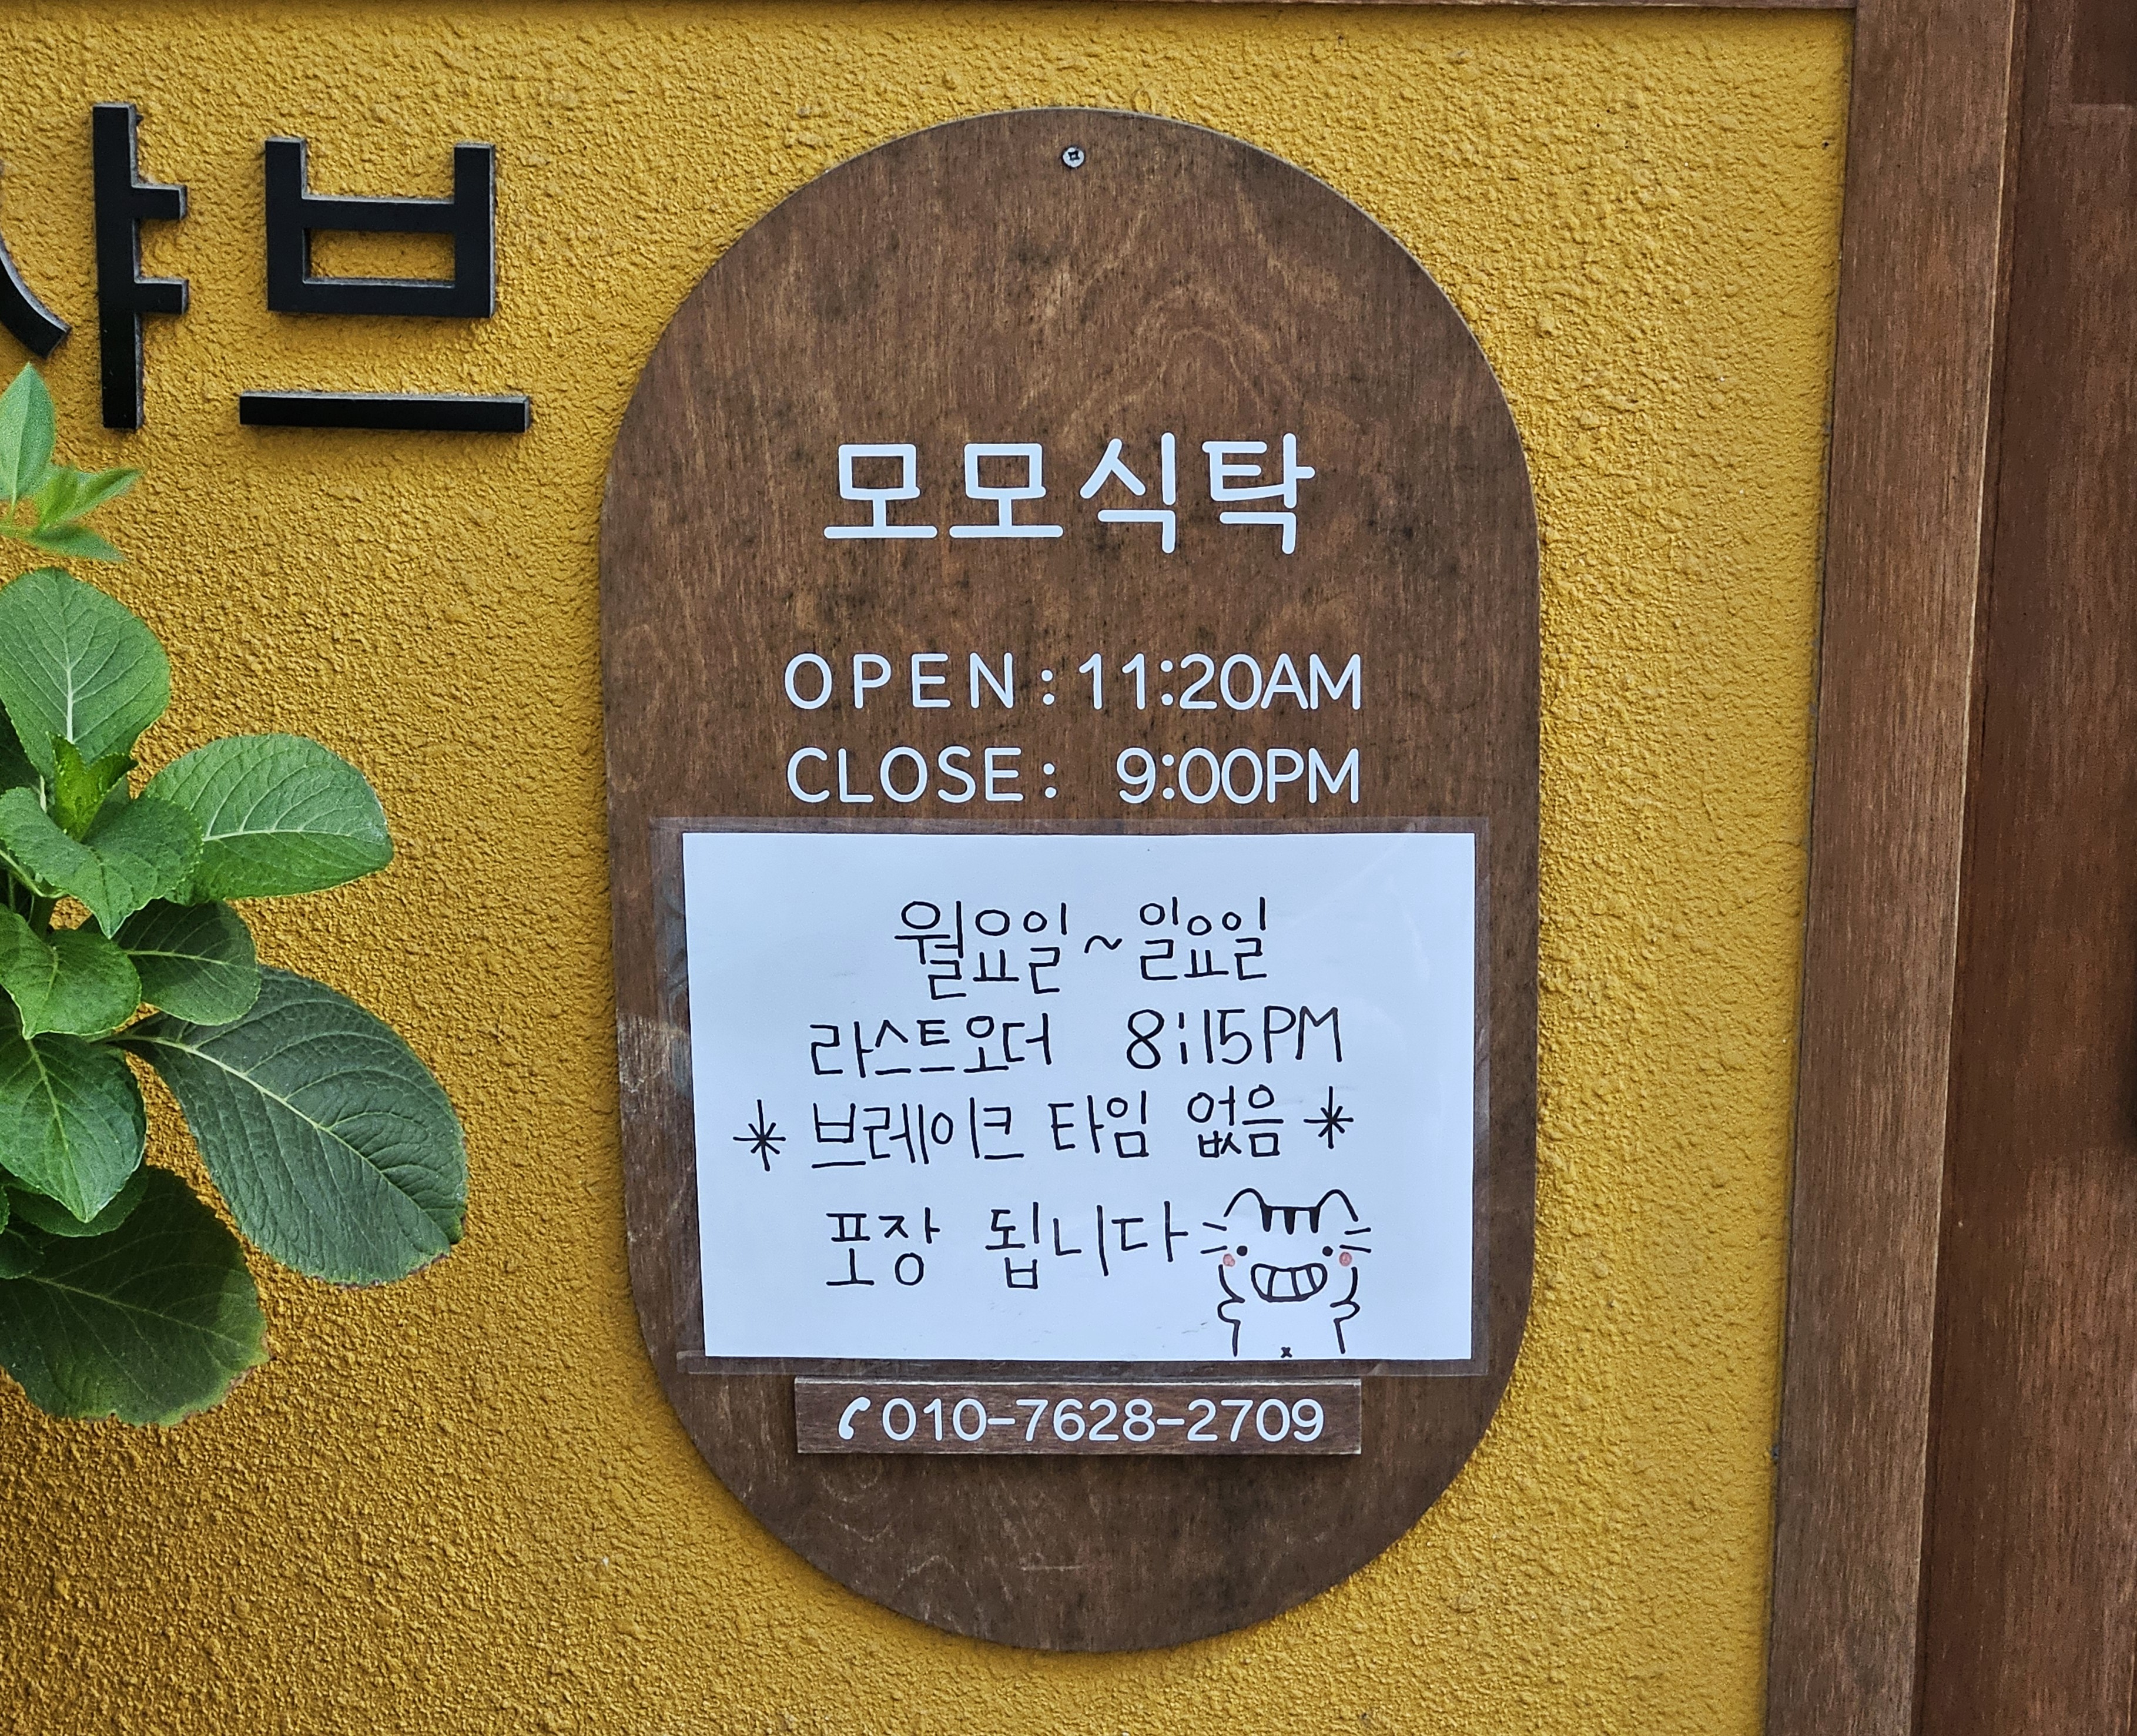 샤브
모모식탁
OPEN:11:20AM
CLOSE: 9:00PM
월요일~일요일
라스트오더 8:15PM
* 브레이크 타임 없음 *
포장 됩니다
010-7628-2709